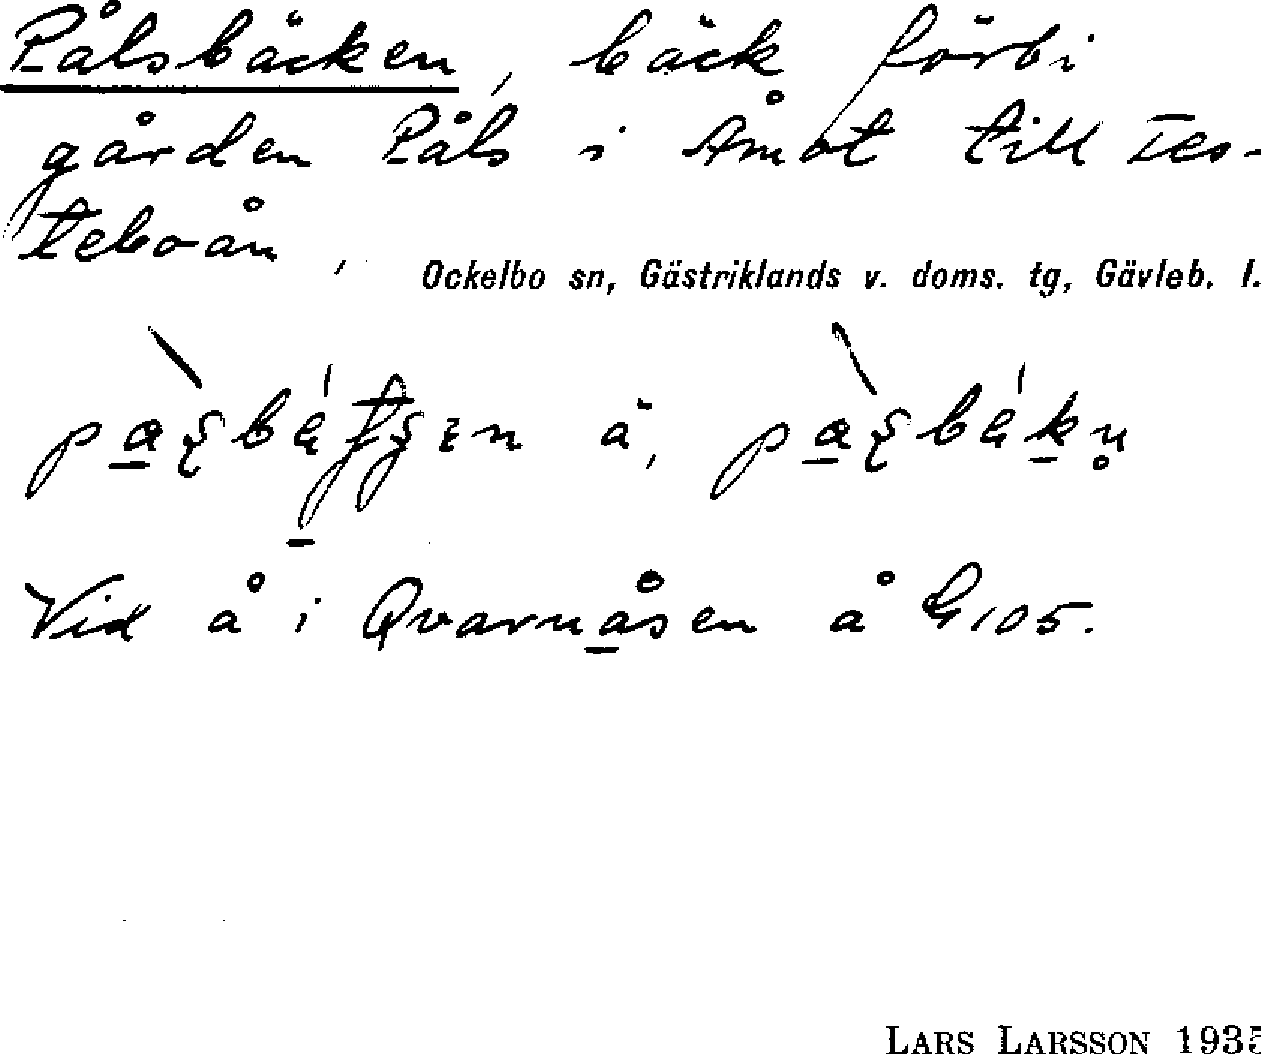 Pålsbäcken, bäck förbi
gården Påls i Åmot till Tes-
teboån,
Ockelbo sn, Gästriklands v. doms. tg, Gävleb. l.
Vid å i Qvarnåsen å G105.
LARS LARSSON 1935